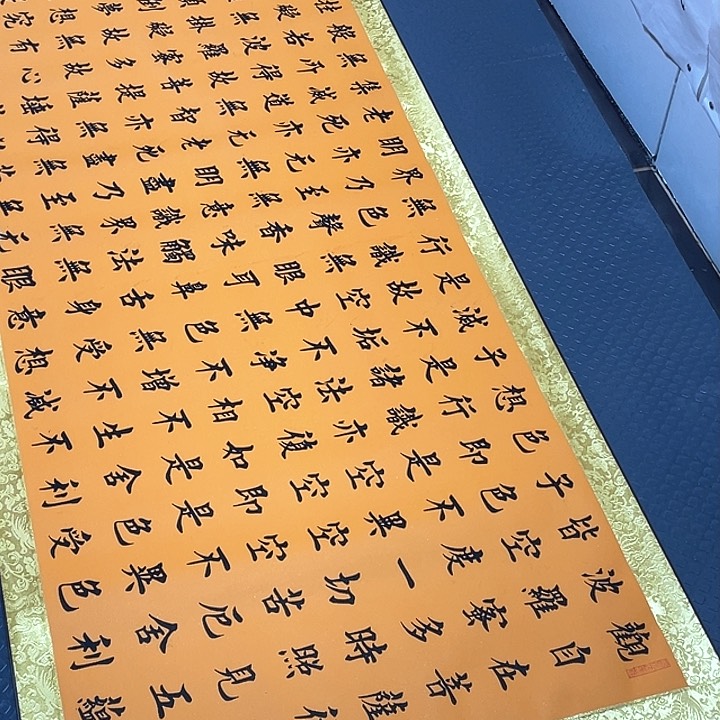 觀自在菩薩行
波羅蜜多時照見五蘊
皆空度一切苦厄舍利
子色不異空空不異色
色即是空空即是色受
想行識亦復如是舍利
子是諸法空相不生不
滅不垢不淨不增不減
是故空中無色無受想
行識無眼耳鼻舌身意
無色聲香味觸法無眼
界乃至無意識界無元
明亦元無明盡乃至無
老死亦元老死盡無
集滅道無智亦無得
無所得故菩提薩埵
般若波羅蜜多故心
掛礙無掛礙故無有
夢想究